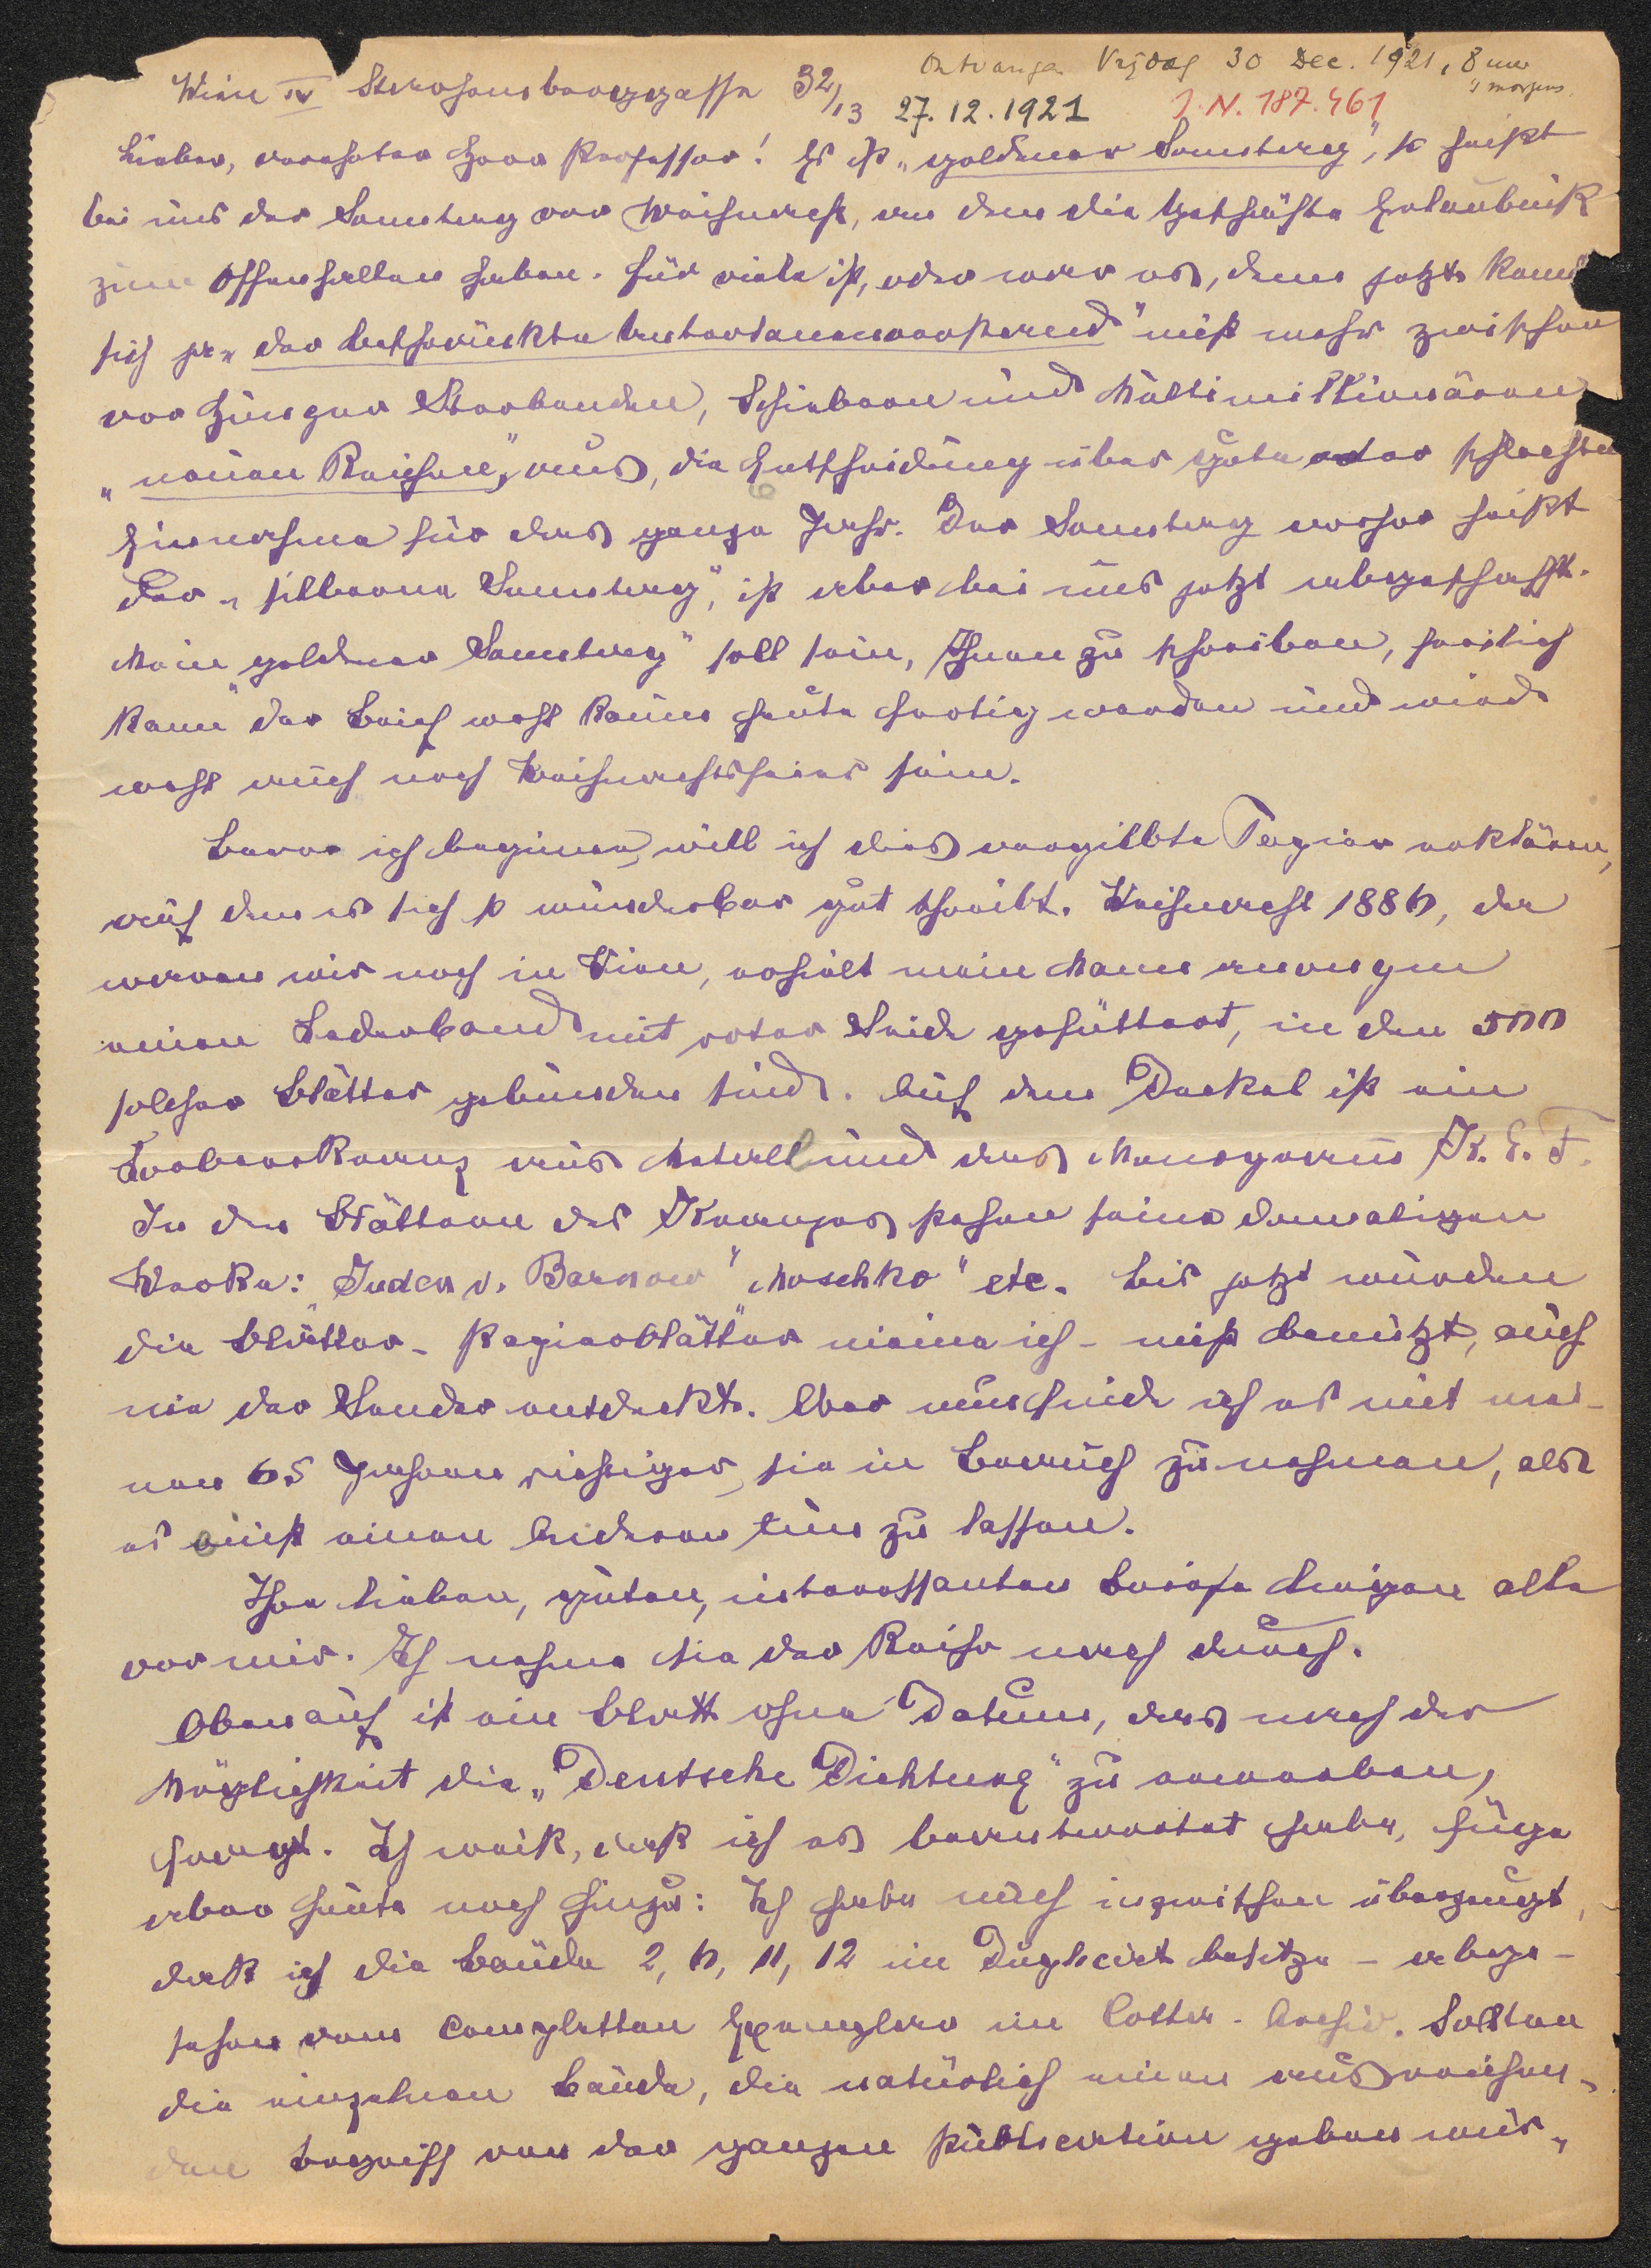 Ontvangen Vrijdag 30 Dec. 1921, 8 uur
's morgens
Wien IV Starhemberggasse 32/13 27.12.1921 I.N. 187.461
Lieber, verehrter Herr Professor! Es ist „goldener Samstag", so heißt
bei uns der Samstag vor Weihnacht, an dem die Geschäfte Erlaubniß
zum Offenhalten haben. Für viele ist, oder war es, denn jetzt kennt
sich ja „der beschränkte Untertanenverstand" nicht mehr zwischen
vor Hunger Sterbenden, Schiebern und Multimillionären
„neuen Reichen", aus, die Entscheidung über gute oder schlechte
Einnahme für das ganze Jahr. Der Samstag vorher heißt
der „silberne Samstag", ist aber bei uns jetzt abgeschafft.
Mein „goldener Samstag" soll sein, Ihnen zu schreiben, freilich
kann der Brief wohl kaum heute fertig werden und wird
wohl auch noch Weihnachtsfeier sein.
Bevor ich beginne, will ich dies vergilbte Papier erklären,
auf dem es sich so wunderbar gut schreibt. Weihnacht 1886, da
waren wir noch in Wien, erhielt mein Mann
einen Lederband mit roter Seide gefüttert, in den 500
solcher Blätter gebunden sind. Auf dem Deckel ist ein
Lorbeerkranz aus Metall und das Monogramm K. E. F.
In den Blättern des Kranzes stehen seine damaligen
Werke: Juden v. Barnow" Moschko" etc. Bis jetzt wurden
die Blätter - Papierblätter meine ich - nicht benützt, auch
nie der Sender entdeckt. Aber nun finde ich es mit mei-
nen 65 Jahren richtiger, sie in Gebrauch zu nehmen, als
es einst einen Anderen tun zu lassen.
Ihre lieben, guten, interessanten Briefe liegen alle
vor mir. Ich nehme sie der Reihe nach durch.
Obenauf ist ein Blatt ohne Datum, das nach der
Möglichkeit die „Deutsche Dichtung" zu erwerben,
frägt. Ich weiß, daß ich es beantwortet habe, füge
aber heute noch hinzu: Ich habe mich inzwischen überzeugt,
daß ich die Bände 2, 6, 11, 12 im Duplicat besitze - abge-
sehen vom completten Exemplar im Cotta-Archiv. Sollten
die einzelnen Bände, die natürlich einen ausreichen-
den Begriff von der ganzen Publication geben wür-